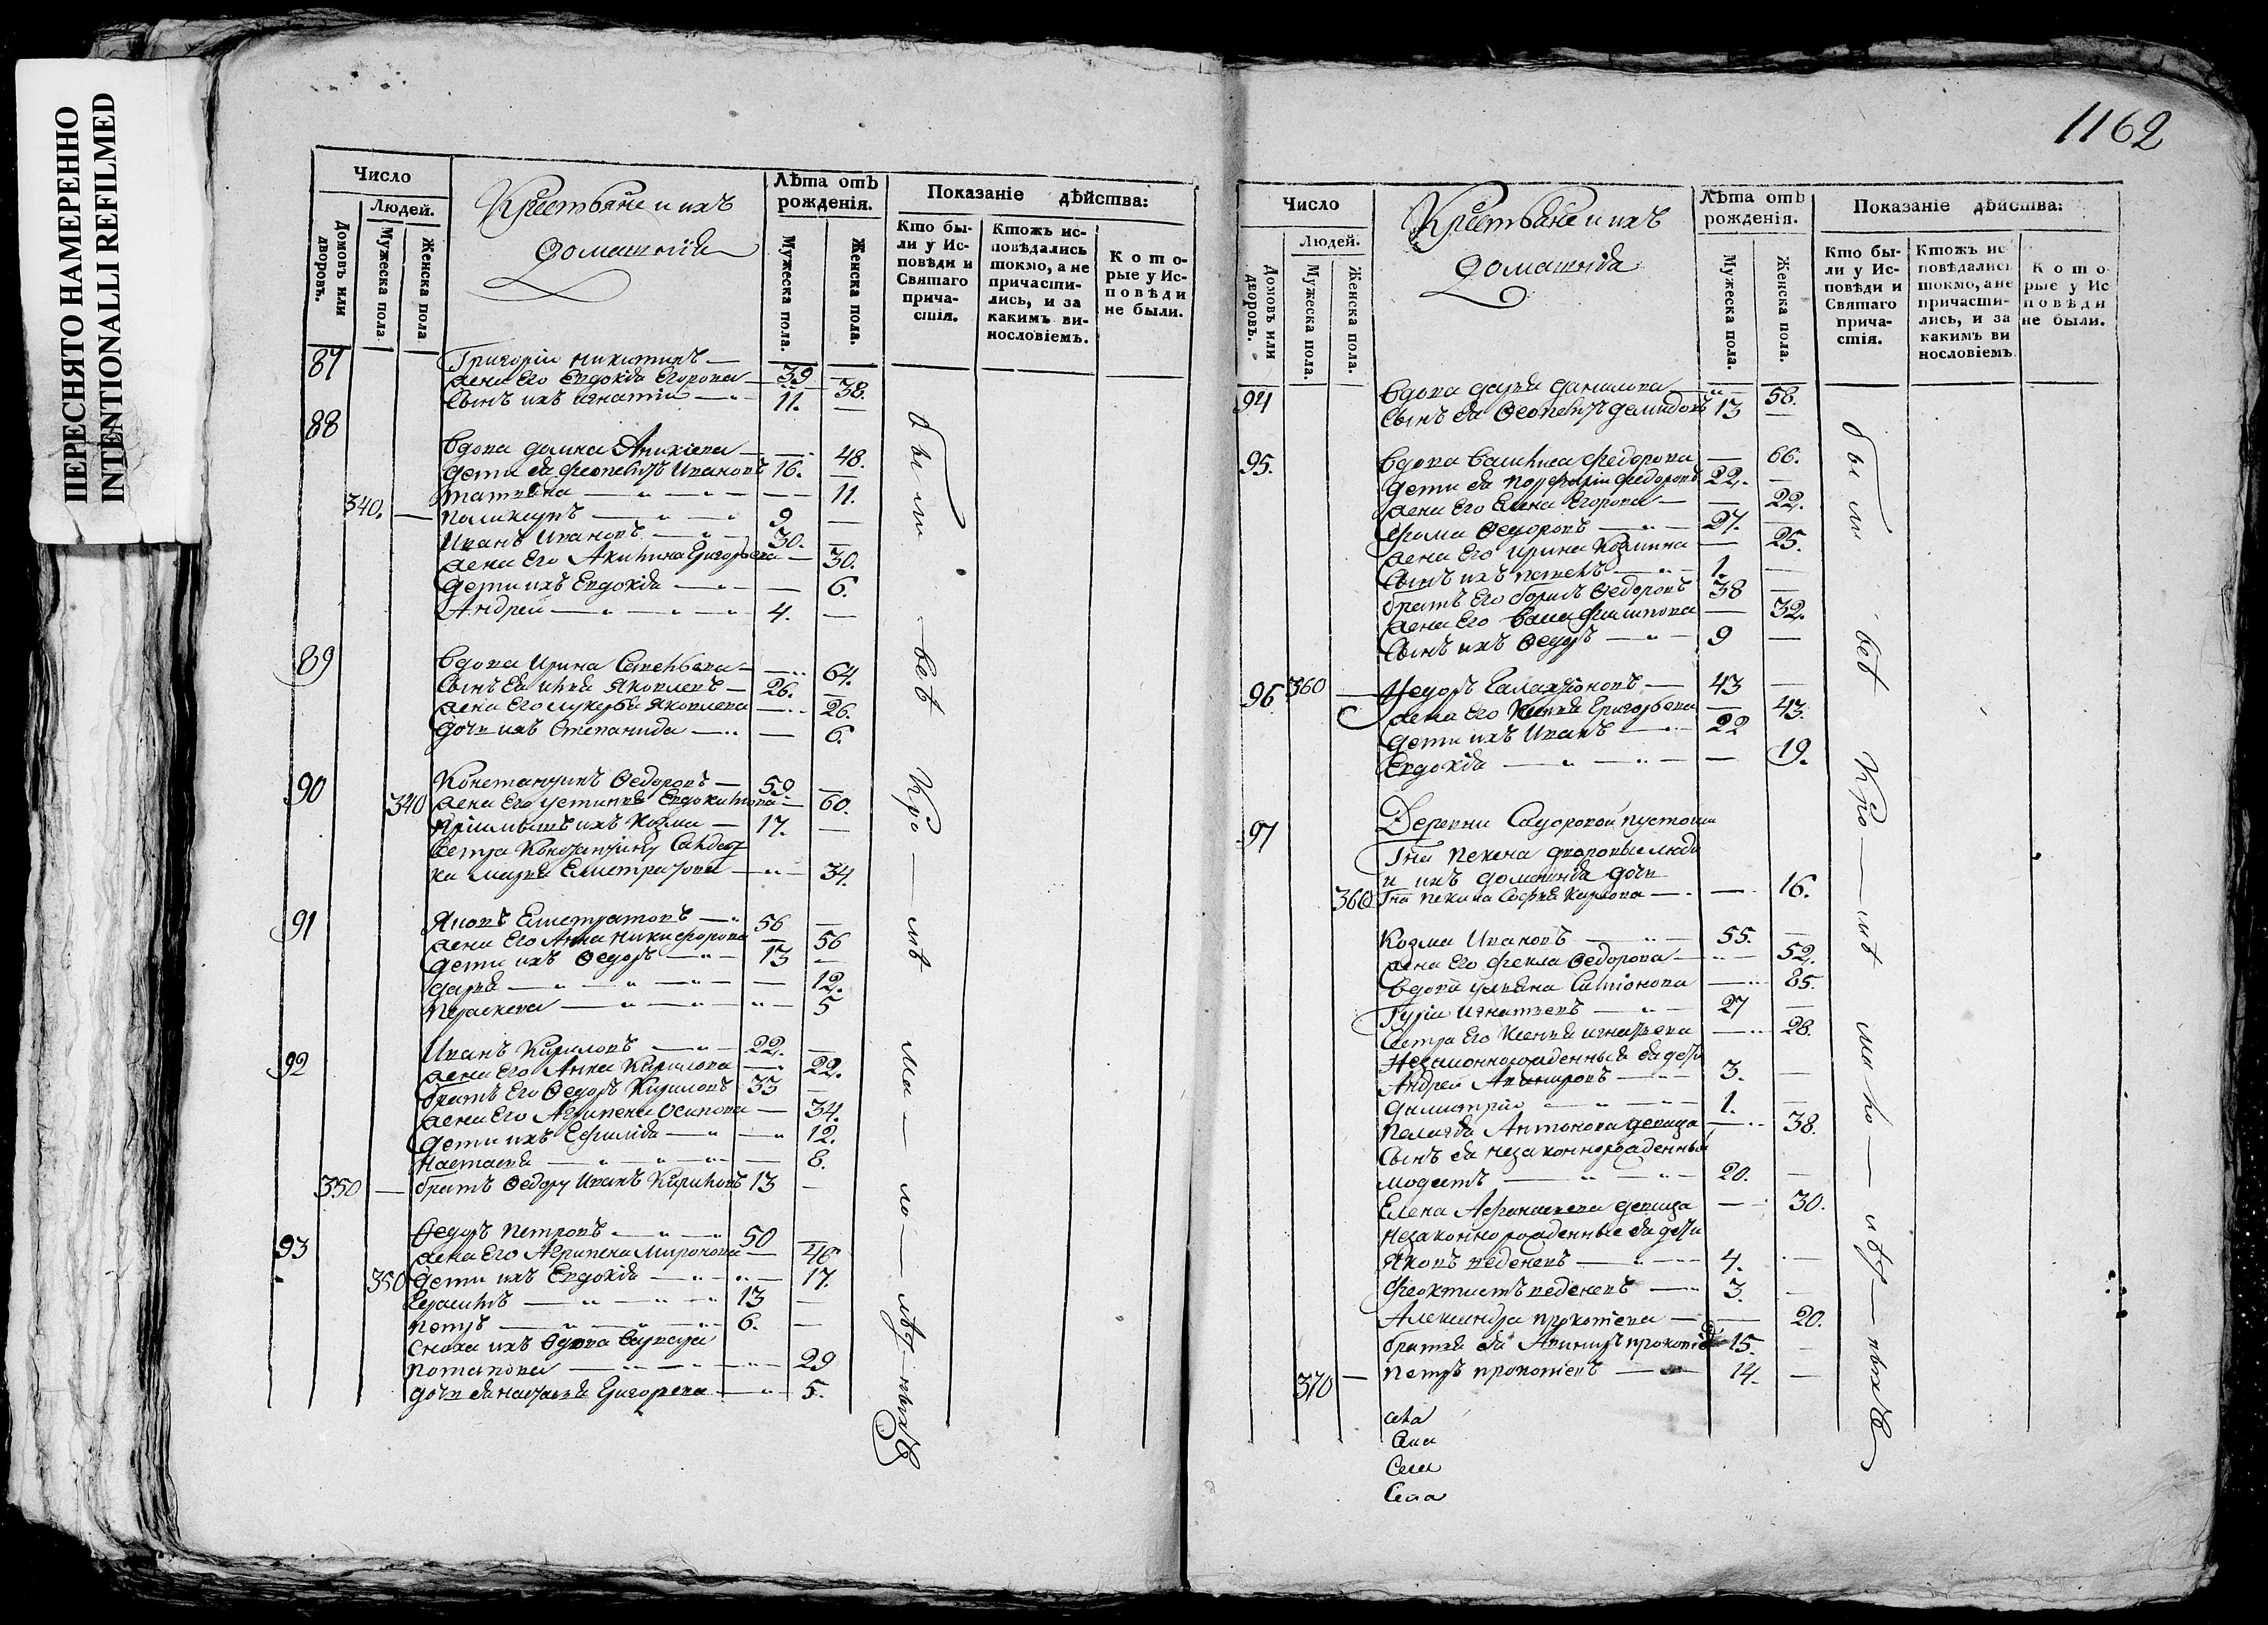 ПЕРЕСНЯТО НАМЕРЕННО
INTENTIONALLI REFILMED
1162
Число
Людей.
Домовъ или дворовъ.
Мужеска пола
Женска пола
Крестьяне и ихъ
домашнія
Лѣта отъ рожденія.
Мужеска пола.
Женска пола.
Показаніе дѣйства:
Кто бы-
ли у Ис-
повѣди и
Святаго
прича-
стія.
Ктожъ ис-
повѣдались
токмо, а не
причасти-
лись, и за
какимъ ви-
нословіемъ.
Кото-
рые у Ис-
повѣди
не были.
87 Григорій никитинъ — 39
жена Его Евдокія Егорова — 38.
Сынъ ихъ игнатій — 11.
88 вдова домна — 48.
дети ея Ивановъ 16.
татьяна — 11.
340. — 9
Иванъ Ивановъ — 30.
жена Его Акилина Григорьева — 30.
дети ихъ Евдокія — 6.
Андрей — 4.
89 вдова Ирина Савельева — 64.
Сынъ ея илья Яковлевъ — 26.
жена Его лукерья Яковлева — 26.
дочь ихъ Степанида — 6.
90 Константинъ Ѳедоровъ — 59.
340 жена Его устинья Евдокимова — 60.
приимышъ ихъ Козма — 17.
Сестра Константину Солдат
ка марья Елистратова — 34.
91 Яковъ Елистратовъ — 56
жена Его Анна никифорова — 56
дети ихъ Ѳедоръ — 13
дарья — 12.
Параскева — 5
92 Иванъ Кириловъ — 22.
жена Его Анна Кирилова — 22.
братъ Его Ѳедоръ Кириловъ 33
жена Его Агрипена Осипова — 34.
дети ихъ Ефимія — 12.
настасья — 8.
350 — братъ Ѳедору Иванъ Кириловъ 13
93 Ѳедоръ Петровъ — 50
жена Его Агрипена Миронова — 46
350 дети ихъ Евдокія — 17.
Герасимъ — 13
петръ — 6.
Сноха ихъ вдова варвара
потапова — 29
дочь ея настасья Григорева — 5.
были всѣ
Число
Людей.
Домовъ или дворовъ.
Мужеска пола.
Женска пола.
Крестьяне и ихъ
домашнія
Лѣта отъ рожденія.
Мужеска пола.
Женска пола.
Показаніе дѣйства:
Кто бы-
ли у Ис-
повѣди и
Святаго
прича-
стія.
Ктожъ ис
повѣдались
токмо, а не
причасти-
лись, и за
какимъ ви
нословіемъ
Кото-
рые у Ис
повѣди
не были.
94 вдова дарья данилова — 56.
Сынъ ея демидовъ 13
95. вдова василиса федорова — 66.
дети ея порфирій федоровъ 22.
жена Его Елена Егорова — 22.
фома Ѳедоровъ — 27.
жена Его Ирина Козмина — 25.
Сынъ ихъ — 1.
братъ Его борисъ Ѳедоровъ 38
жена Его васа филипова — 32.
Сынъ ихъ Ѳедоръ — 9
96 360 — Ѳедоръ Галактіоновъ — 43
жена Его Ксенья Григорьева — 43.
дети ихъ Иванъ — 22
Евдокія — 19.
97 Деревни Сидоровой пустоши
Гна дворовые люди
и ихъ домашнія дочь
360 Гна Софья Карлова — 16.
Козма Ивановъ — 55.
жена Его фекла Ѳедорова — 52.
вдова ульяна Симіонова — 85.
Гурій игнатьевъ — 27
Сестра Его Ксенья игнатьева — 28.
Незаконнорожденныя ея дети
Андрей — 3.
димитрій — 1.
Пелагея Антонова девица — 38.
Сынъ ея незаконнорожденный
модестъ — 20.
Елена Афанасьева девица — 30.
незаконнорожденные ея дети
Яковъ — 4.
феоктистъ — 3.
Александра прокопіева — 20.
братья ея прокопіев 15.
370 — петръ прокопіевъ — 14.
были всѣ